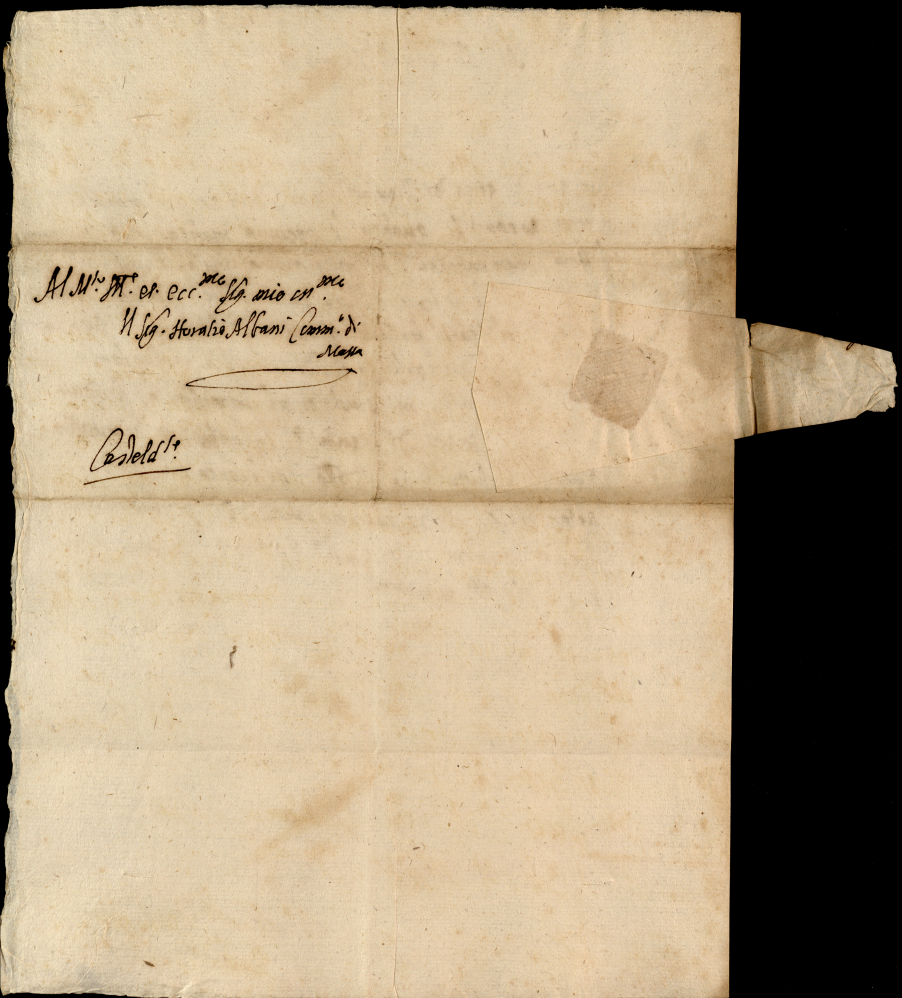 Al M.to Ill.e et ecc.mo Sig. mio oss.mo
Il Sig. Horatio Albani Comm.o di
Massa
Casteld.te